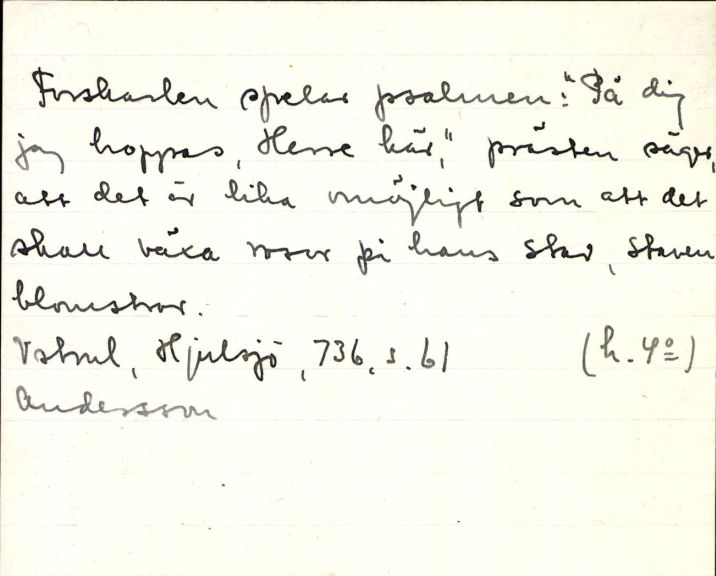 Forskarlen spelar psalmen: "På dig
jag hoppas, Herre kär," prästen säger,
att det är lika omöjligt som att det
skall växa rosor på hans stav, staven
blomstrar.
Hjulsjö, 736, s. 61 (h. 4º)
Andersson